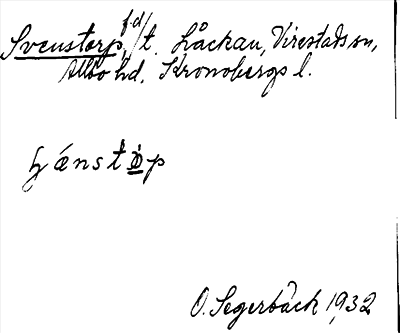 Svenstorp, f.d/t. Låckau, Virestads sn,
Allbo hd. Kronobergs l.
O. Segerbäck 1932